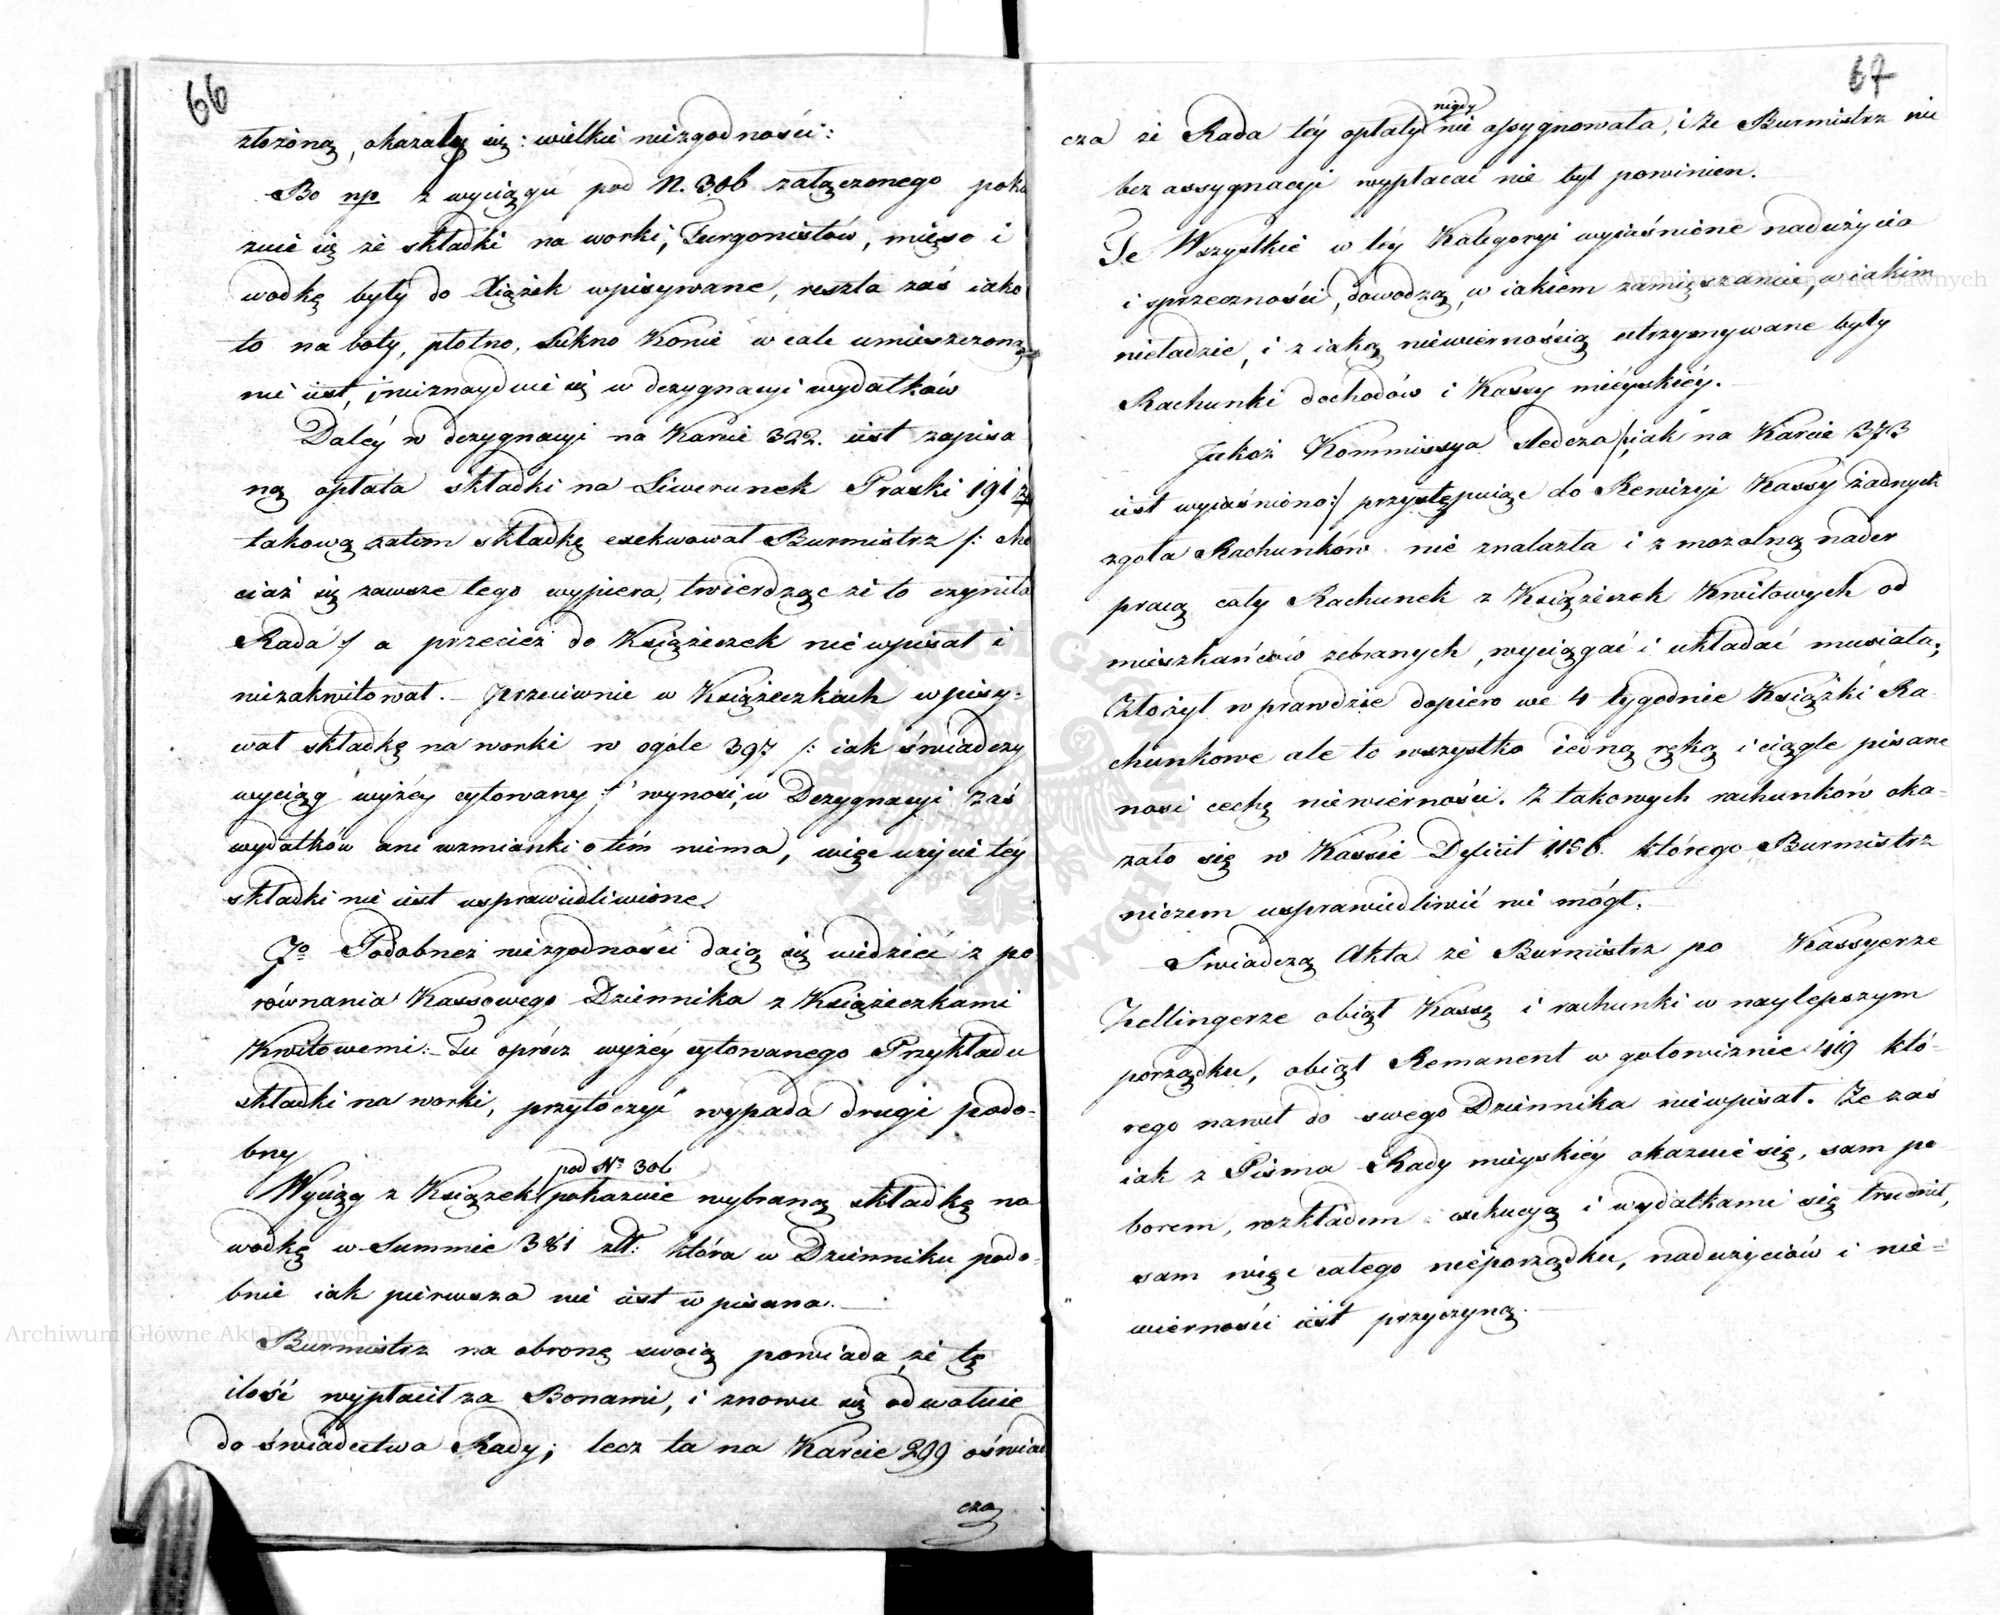 66
złożoną, okazały się: wielkie niezgodności:
Bo np z wyciągu pod N. 306 załączonego poka
zuie się że składki na worki, Furgonistów, mięso i
wodkę były do Xiążek wpisywane, reszta zaś iako
to na boty, płotno, Sukno Konie w cale umieszczoną
nie iest, i nieznayduie się w dezygnacyi wydatków
Daléy w dezygnacyi na Karcie 322. iest zapisa
ną opłata składki na Liwerunek Praski 191
takową zatem składkę exekwował Burmistrz /: cho
ciaż się zawsze tego wypiera, twierdząc że to czyniła
Rada :/ a przecież do Książeczek nie wpisał i
niezakwitował. – przeciwnie w Książeczkach wpisy-
wał składkę na worki w ogóle 397 /: iak świadczy
wyciąg wyżéy cytowany :/ wynosi, w Dezygnacyi zaś
wydatków ani wzmianki o tém niema, więc użycie téy
składki nie iest usprawiedliwione.
7o Podobnez niezgodności daią się widzieć z po
równania Kassowego Dziennika z Książeczkami
Kwitowemi: – Tu oprócz wyżéy cytowanego Przykładu
składki na worki, przytoczyć wypada drugi podo-
bny
pod No 306
Wyciąg z Książek pokazuie wybraną składkę na
wodkę w Summie 381 złt: która w Dzienniku podo-
bnie iak pierwsza nie iest wpisana. –
Burmistrz na obronę swoią powiada że tę
ilość wypłacił za Bonami, i znowu się odwołuie
do świadectwa Rady; lecz ta na Karcie 299 oświad
cza
67
nigdy
cza że Rada téy opłaty nie assygnowała, i że Burmistrz nic
bez assygnacyi wypłacać nie był powinien.
Te Wszystkie w téy Kategoryi wyiaśnione nadużycia
i sprzeczności, dowodzą, w iakiem zamięszaniu, w iakim
nieładzie, i z iaką niewiernością utrzymywane były
Rachunki dochodów i Kassy mieyskiéy. –
Jakoż Kommissya śledcza /: iak na Karcie 373
iest wyiaśniono :/ przystępuiąc do Rewizyi Kassy żadnych
zgoła Rachunków nie znalazła i z mozolną nader
pracą cały Rachunek z Książeczek Kwitowych od
mieszkańców zebranych, wyciągać i układać musiała;
Złożył wprawdzie dopiero we 4 tygodnie Książki Ra-
chunkowe ale to wszystko iedną ręką i ciągle pisane
nosi cechę niewierności. Z takowych rachunków oka-
zało się w Kassie Deficit 1,156. którego Burmistrz
niczem usprawiedliwić nie mógł. –
Swiadczą Akta że Burmistrz po Kassyerze
Zellingerze obiął Kassę i rachunki w naylepszym
porządku, obiął Remanent w gotowiznie 419 któ-
rego nawet do swego Dziennika niewpisał. Ze zaś
iak z Pisma Rady mieyskiéy okazuie się, sam po
borem, rozkładem exekucyą i wydatkami się trudnił,
sam więc całego nieporządku, nadużyciów i nie-
wierności iest przyczyną. –
Archiwum Główne Akt Dawnych
Archiwum Główne Akt Dawnych